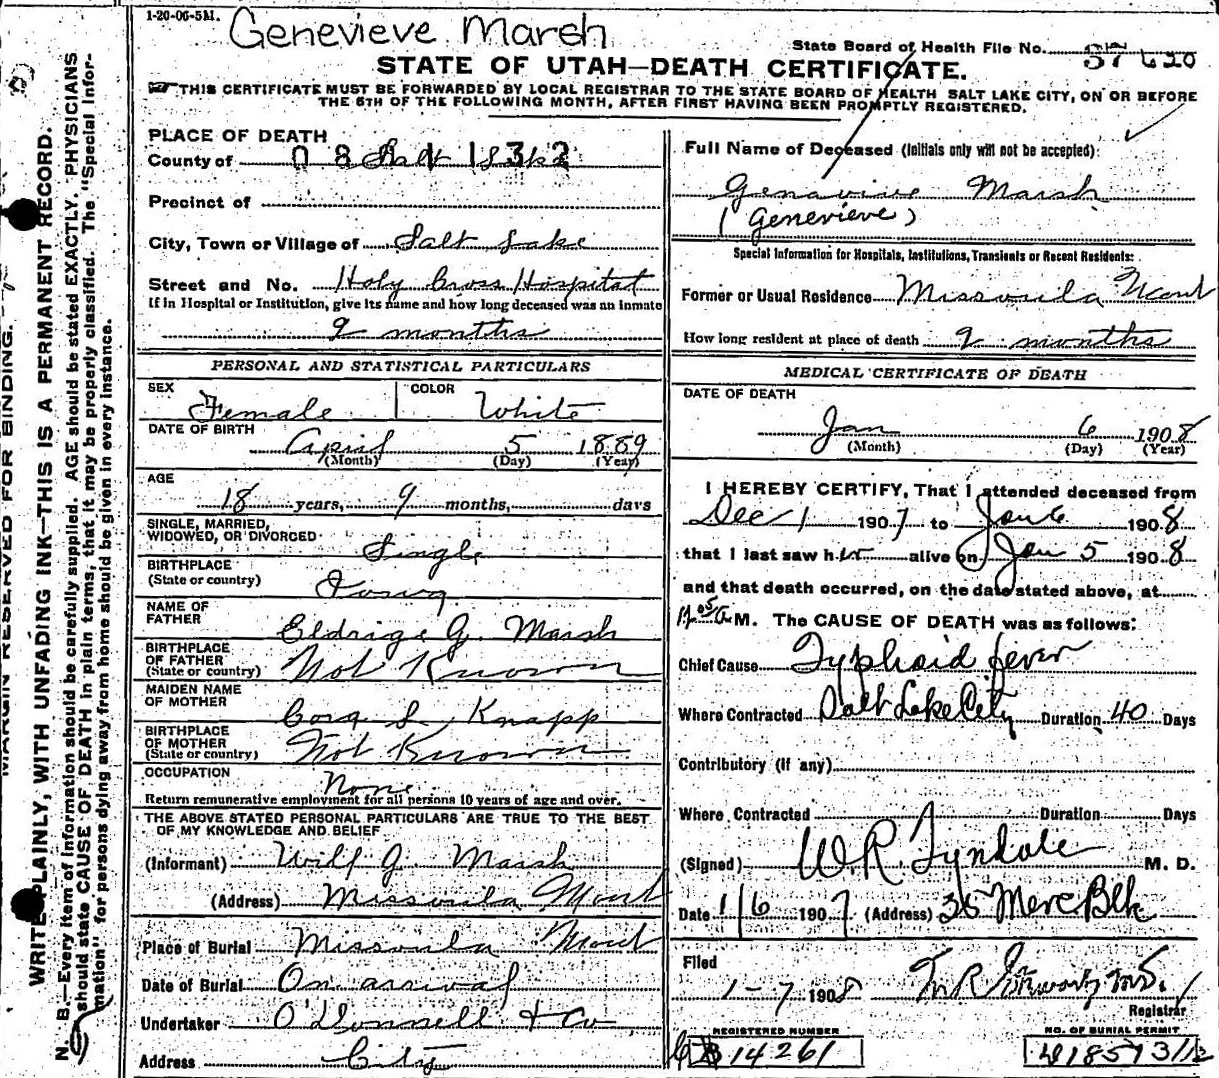 1-20-06-5M.
Genevieve Marsh
State Board of Health File No.
STATE OF UTAH—DEATH CERTIFICATE.
THIS CERTIFICATE MUST BE FORWARDED BY LOCAL REGISTRAR TO THE STATE BOARD OF HEALTH SALT LAKE CITY, ON OR BEFORE
THE 5TH OF THE FOLLOWING MONTH, AFTER FIRST HAVING BEEN PROMPTLY REGISTERED.
MARGIN RESERVED FOR BINDING.
WRITE PLAINLY, WITH UNFADING INK—THIS IS A PERMANENT RECORD.
N. B.—Every item of information should be carefully supplied. AGE should be stated EXACTLY. PHYSICIANS
should state CAUSE OF DEATH in plain terms, that it may be properly classified. The "Special Infor-
mation" for persons dying away from home should be given in every instance.
PLACE OF DEATH
County of Salt Lake
Precinct of
City, Town or Village of Salt Lake
Street and No. Holy Cross Hospital
If in Hospital or Institution, give its name and how long deceased was an inmate
9 months
PERSONAL AND STATISTICAL PARTICULARS
SEX Female COLOR White
DATE OF BIRTH April 5 1889
(Month) (Day) (Year)
AGE
18 years, 9 months, days
SINGLE, MARRIED,
WIDOWED, OR DIVORCED Single
BIRTHPLACE
(State or country) Iowa
NAME OF
FATHER Eldrige G. Marsh
BIRTHPLACE
OF FATHER
(State or country) Not Known
MAIDEN NAME
OF MOTHER Cora L Knapp
BIRTHPLACE
OF MOTHER
(State or country) Not Known
OCCUPATION None
Return remunerative employment for all persons 10 years of age and over.
THE ABOVE STATED PERSONAL PARTICULARS ARE TRUE TO THE BEST
OF MY KNOWLEDGE AND BELIEF
(Informant) Will G. Marsh
(Address) Missoula Mont
Place of Burial Missoula Mont
Date of Burial On arrival
Undertaker O'Donnell & Co
Address City
Full Name of Deceased (Initials only will not be accepted):
Genavive Marsh
(Genevieve)
Special Information for Hospitals, Institutions, Transients or Recent Residents:
Former or Usual Residence Missoula Mont
How long resident at place of death 9 months
MEDICAL CERTIFICATE OF DEATH
DATE OF DEATH
Jan 6 1908
(Month) (Day) (Year)
I HEREBY CERTIFY, That I attended deceased from
Dec 1 1907 to Jan 6 1908
that I last saw her alive on Jan 5 1908
and that death occurred, on the date stated above, at
M. The CAUSE OF DEATH was as follows:
Chief Cause Typhoid fever
Where Contracted Salt Lake City Duration 40 Days
Contributory (if any)
Where Contracted Duration Days
(Signed) W.R. Tyndale M. D.
Date 1/6 1907 (Address) 35 Merc Blk
Filed
1-7 1908
Registrar
REGISTERED NUMBER
14261
NO. OF BURIAL PERMIT